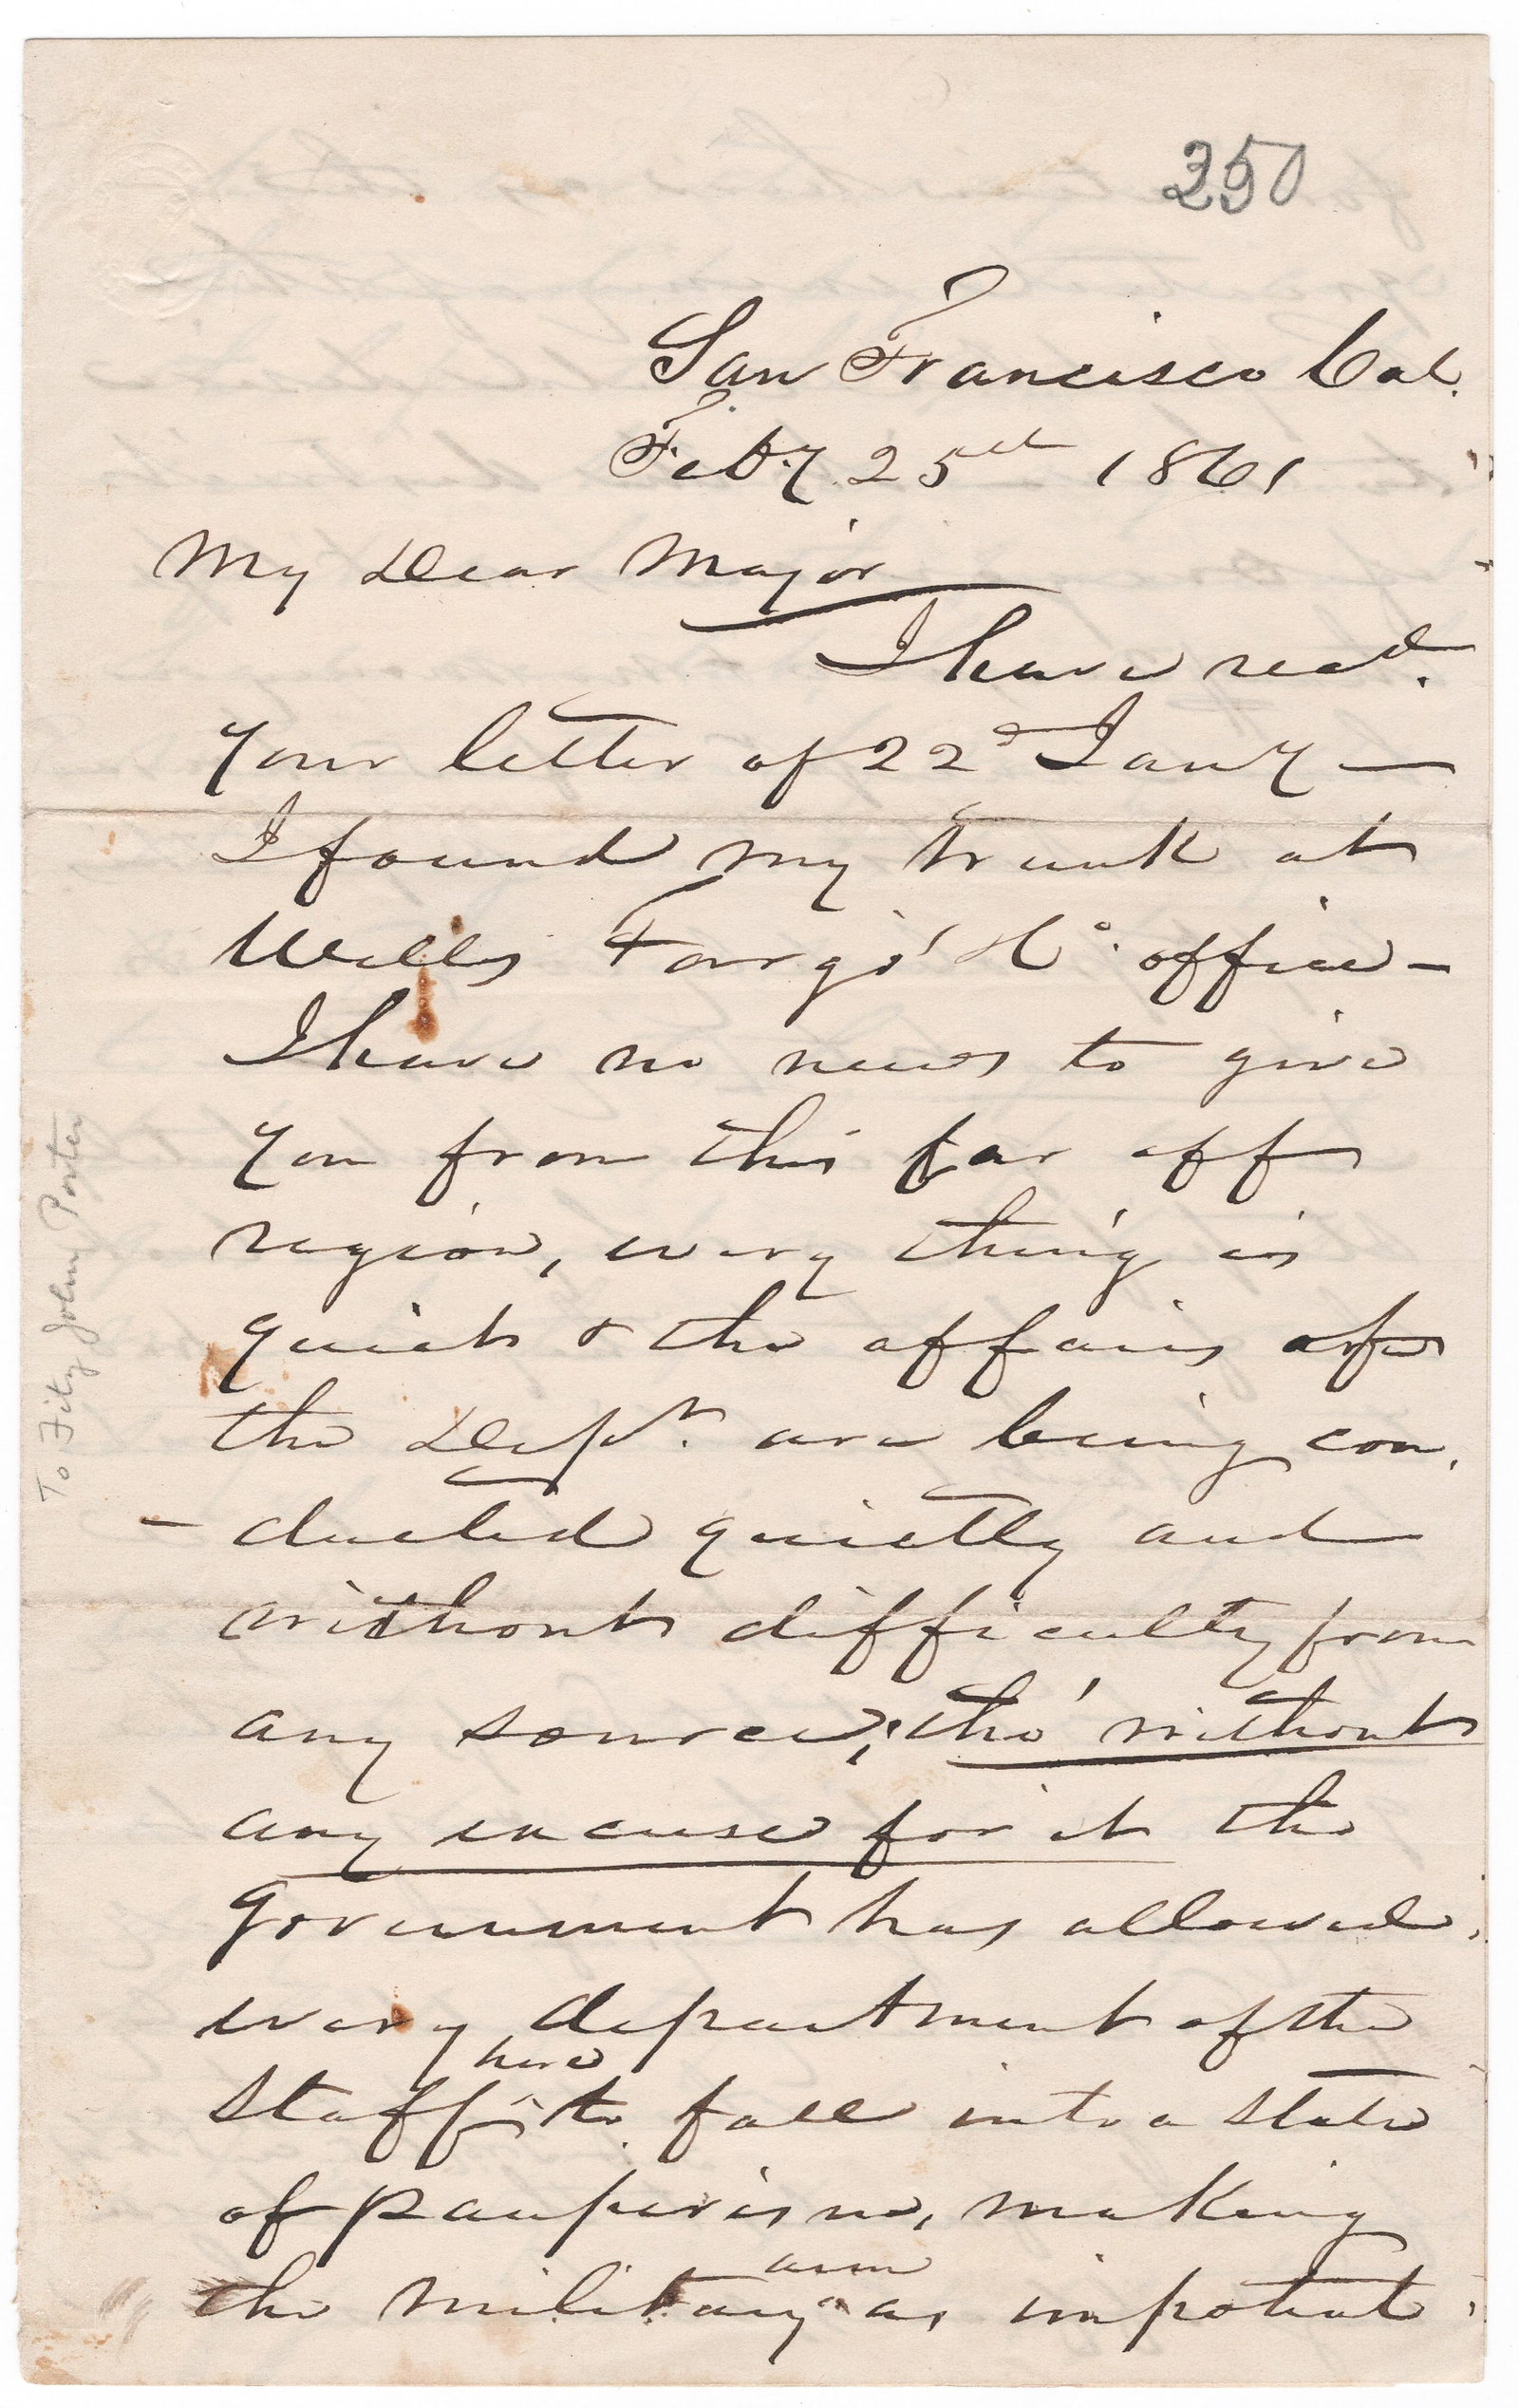 250
San Francisco Cal.
Feby. 25th 1861
My Dear Major
I have recd.
your letter of 22d Jany —
I found my trunk at
Wells Fargo' & Co. office —
I have no news to give
you from this far off
region, every thing is
quiet & the affairs of
the Dept. are being con.
- ducted quietly and
without difficulty from
any source; tho' without
any excuse for it the
Government has allowed
every department of the
here
staff to fall into a state
of pauperism, making
arm
the military as impotent
To Fitz John Porter